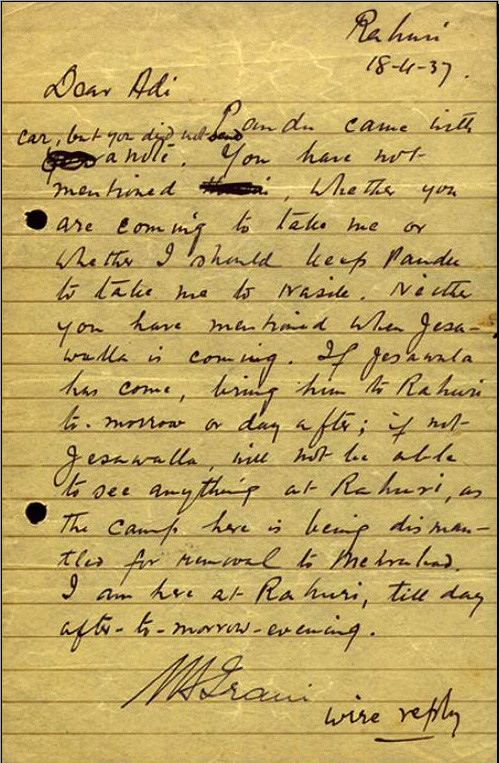 Rahuri
18-4-37.
Dear Adi
Pandu came with
car, but you did not send
a note. You have not
mentioned, whether you
are coming to take me or
whether I should keep Pandu
to take me to Nasik. Neither
you have mentioned when Jesa-
walla is coming. If Jesawala
has come, bring him to Rahuri
to-morrow or day after; if not
Jesawalla, will not be able
to see anything at Rahuri, as
the camp here is being disman-
tled for removal to Meherabad.
I am here at Rahuri, till day
after-to-morrow-evening.
M S Irani
wire reply